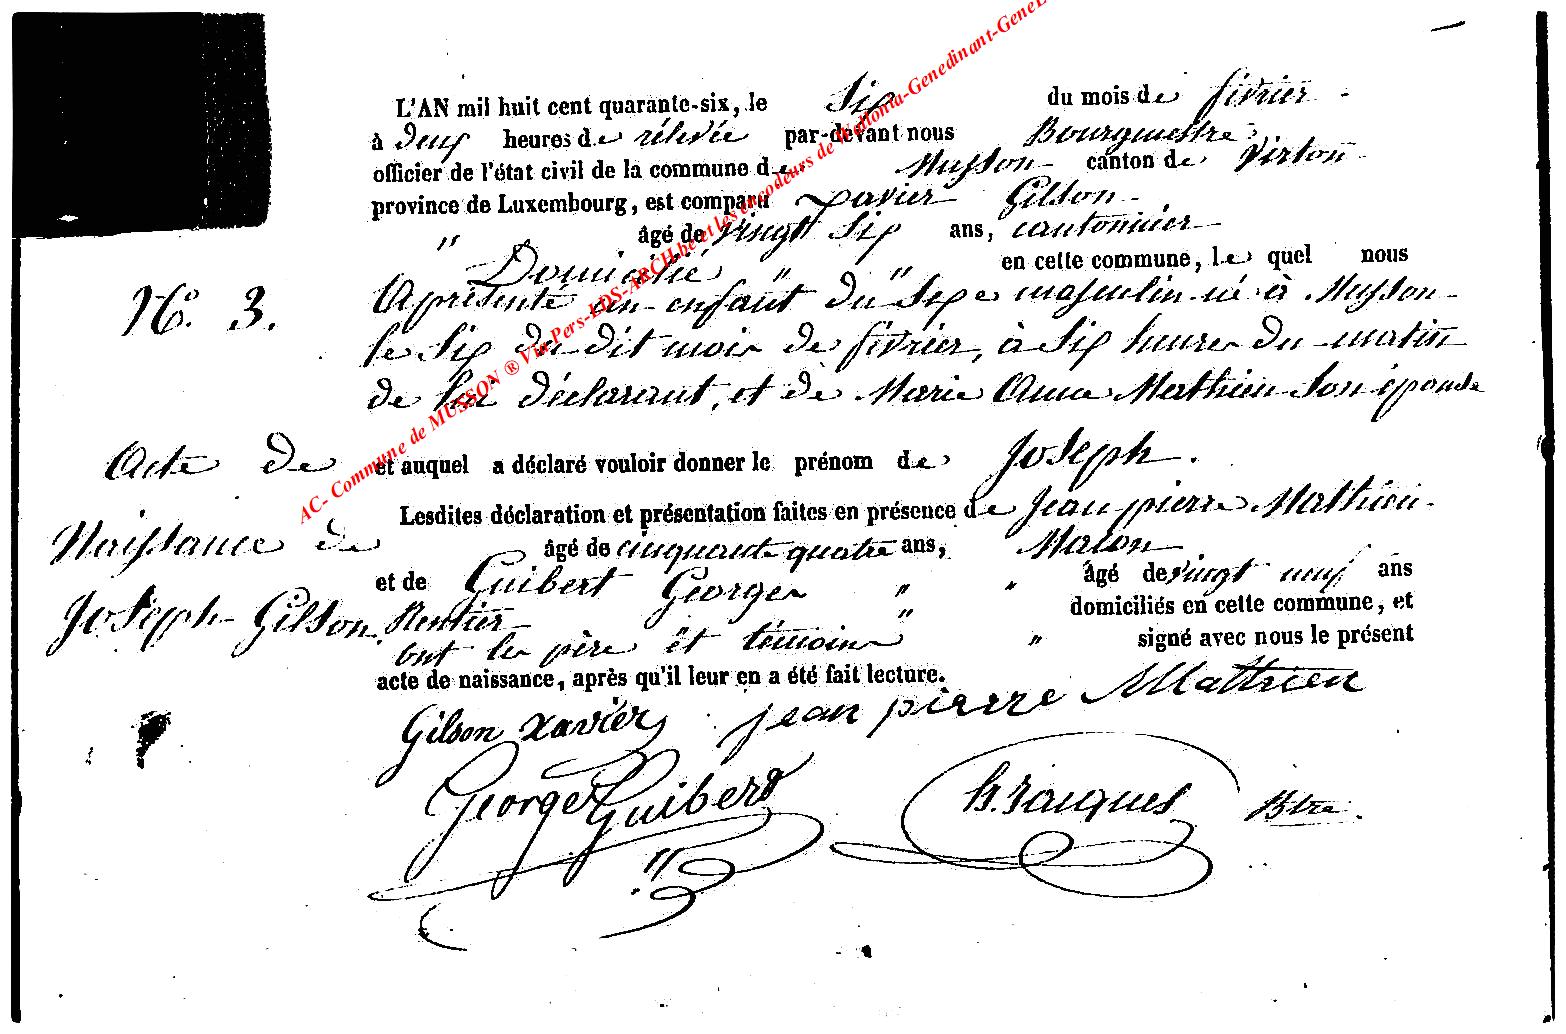 L'AN mil huit cent quarante-six, le Six du mois de février
à deux heures de rélévée par-devant nous Bourgmestre
officier de l'état civil de la commune de Musson canton de Virton
province de Luxembourg, est comparu Xavier Gilson
" âgé de vingt Six ans, cantonnier
Domicilié " " en cette commune, le quel nous
N° 3.
A présenté un enfant du Sexe masculin né à Musson
le Six du dit mois de février, à Six heures du matin
de lui déclarant, et de Marie Anne Mathieu Son épouse
Acte de
Naissance de
Joseph Gilson.
et auquel a déclaré vouloir donner le prénom de Joseph.
Lesdites déclaration et présentation faites en présence de Jean pierre Mathieu
âgé de cinquante quatre ans, Macon
et de Guibert Georges " " âgé de vingt neuf ans
Rentier " domiciliés en cette commune, et
ont les père et témoins " " signé avec nous le présent
acte de naissance, après qu'il leur en a été fait lecture.
Gilson Xavier jean pierre Mathieu
George Guibert h. Jacques Btre.
AC- Commune de MUSSON ® Via Pers-LDS-ARCH.be et les encodeurs de Wallonia-Genedinant-GeneL